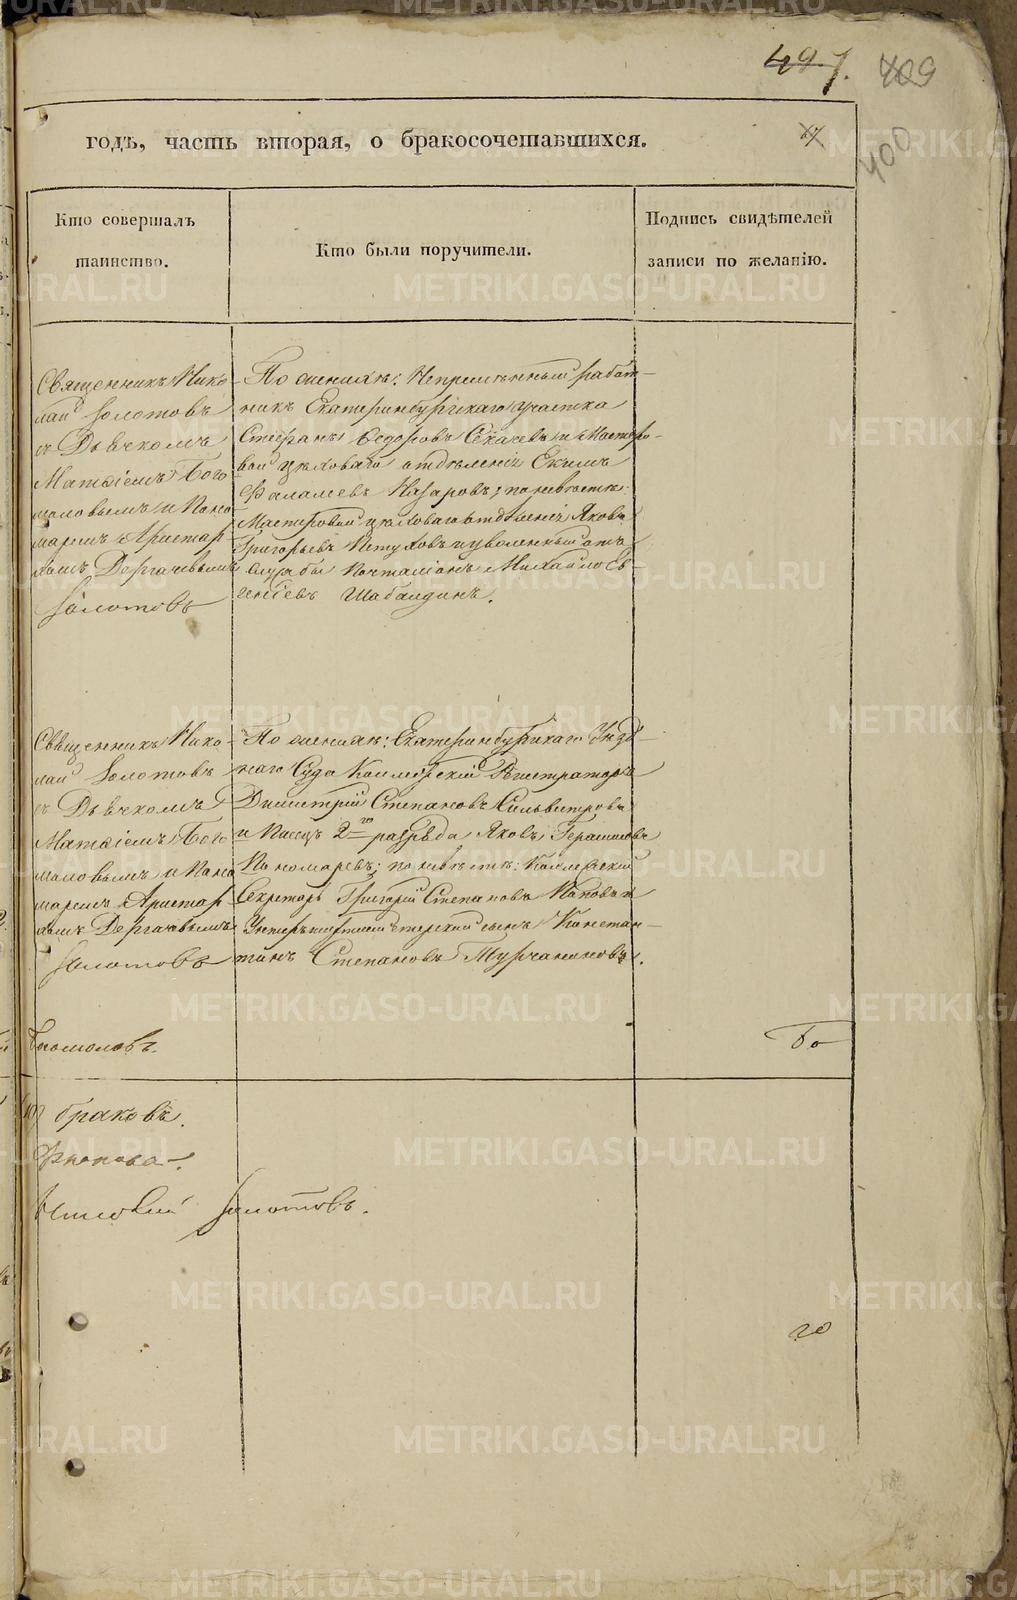 497.
409
400
годъ, часть вторая, о бракосочетавшихся.
Кто совершалъ
таинство.
Кто были поручители.
Подпись свидѣтелей
записи по желанію.
Священникъ Нико-
лай Золотовъ
съ Дьячкомъ
Матѳіемъ Бого
моловымъ и Поно
маремъ Аристар
хомъ Дергачевымъ
Золотовъ
По женихѣ: Непремѣнный работ-
никъ Екатеринбургскаго участка
Стефанъ Ѳедоровъ Секачевъ и Мастеро-
вой цѣховаго отдѣленія Екимъ
Фалалеевъ Назаровъ; по невѣстѣ:
Мастеровой цѣховаго отдѣленія Яковъ
Григорьевъ Пѣтуховъ и уволенный отъ
службы Почталіонъ Михайло Ев-
геніевъ Шабалдинъ.
Священникъ Нико-
лай Золотовъ
съ Дьячкомъ
Матѳіемъ Бого
моловымъ и Поно
маремъ Аристар
хомъ Дергачевымъ
Золотовъ
По женихѣ: Екатеринбургскаго Уѣзд-
наго Суда Коллежскій Регистраторъ
Димитрій Степановъ Сильвестровъ
и Писецъ 2го разряда Яковъ Герасимовъ
Пономаревъ; по невѣстѣ: Коллежскій
Секретарь Григорій Степановъ Поповъ и
Унтершихтмейстерскій сынъ Констан-
тинъ Степановъ Турчаниновъ.
Богомоловъ.
Бо
браковъ.
Золотовъ.
го
METRIKI.GASO-URAL.RU